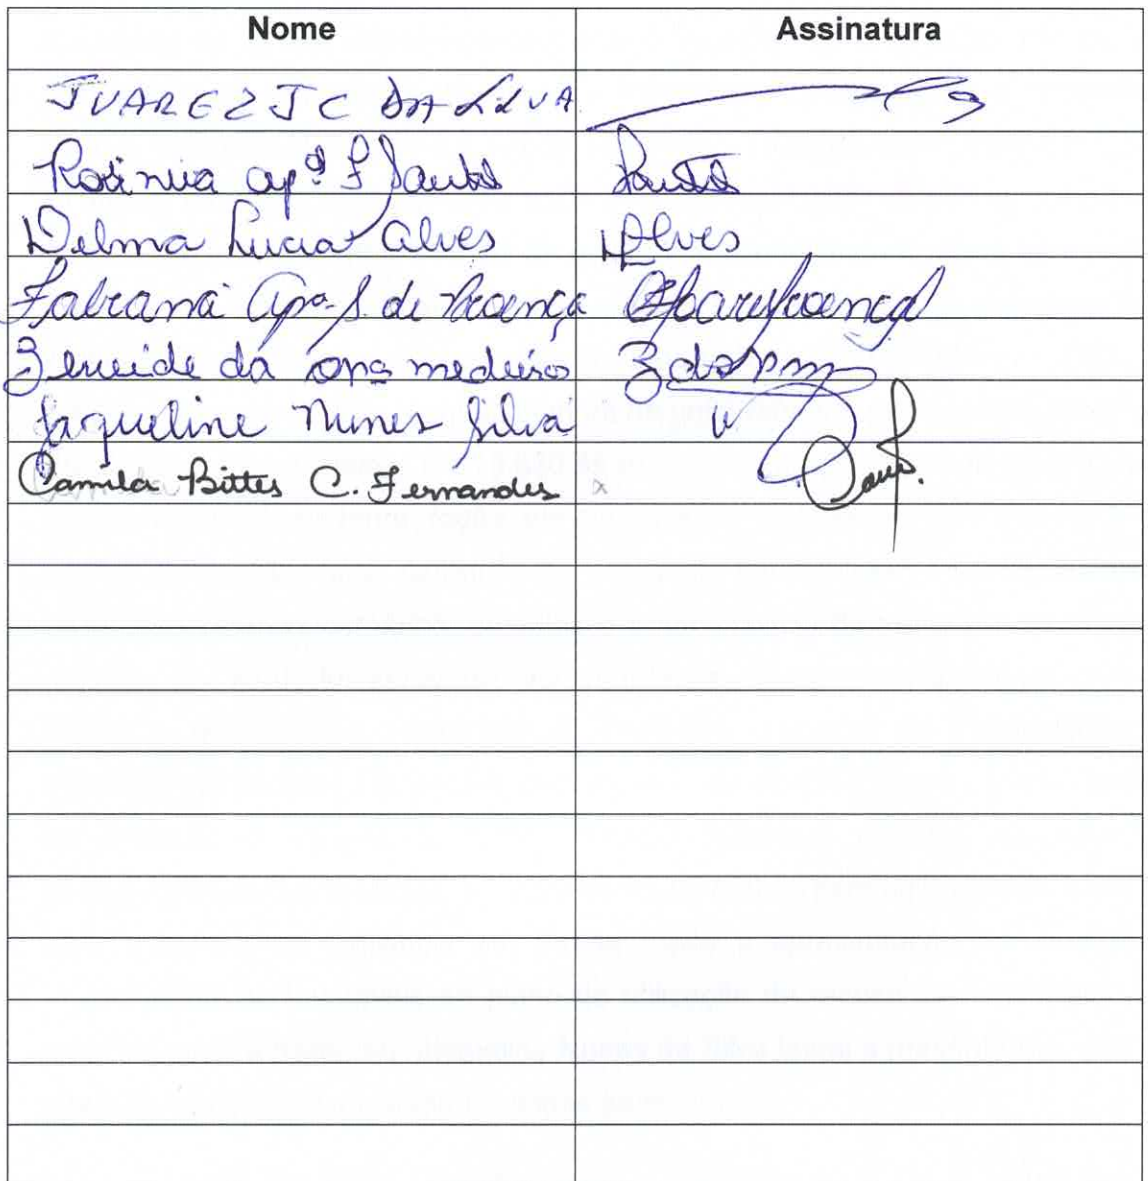 Nome Assinatura
JUAREZ J C DA SILVA
apª F Santos Santos
Delma Lucia Alves Alves
Fabiana Apª S. de Proença
da medeiros
Jaqueline Nunes Silva
Camila Bittes C. Fernandes x